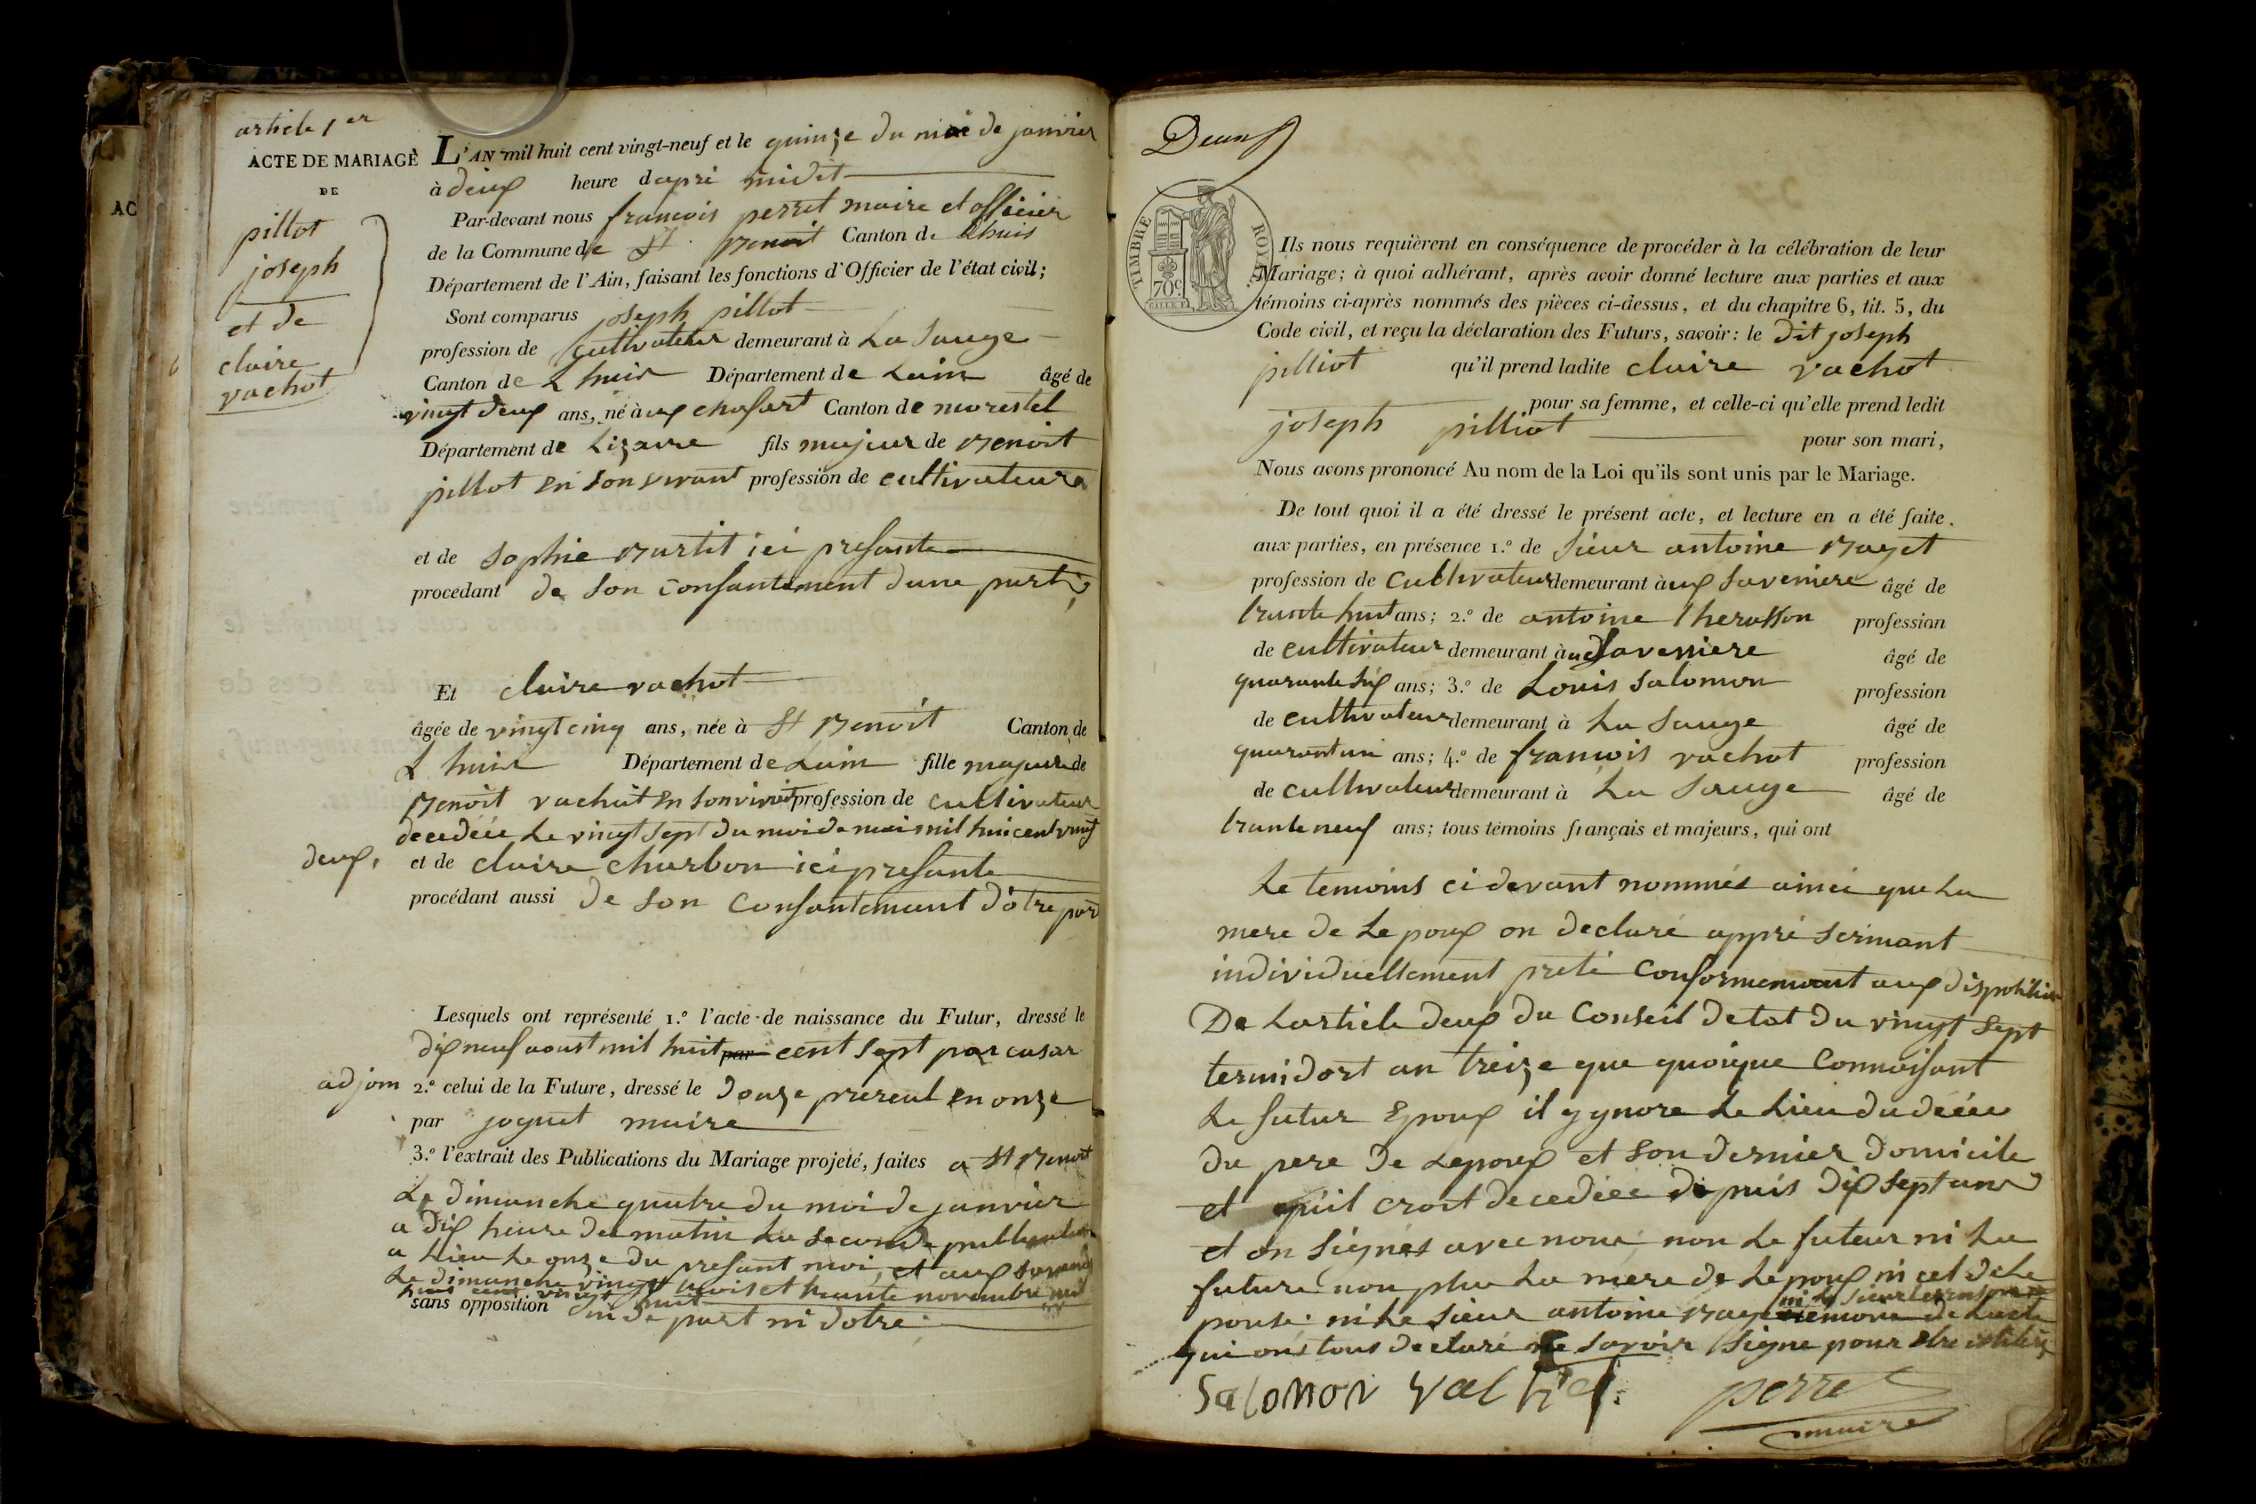 article 1er
ACTE DE MARIAGE
DE
pillot
joseph
et de
claire
vachot
L'AN mil huit cent vingt-neuf et le quinze du moi de janvier
à deux heure dapri midit
Par-devant nous francois perret maire et officier
de la Commune de St Benoit Canton de Lhuis
Département de l'Ain, faisant les fonctions d'Officier de l'état civil;
Sont comparus joseph pillot
profession de cultivateur demeurant à La Sauge
Canton de L huis Département de Lain âgé de
vingt deux ans, né à aux Canton de morestel
Département de Lizaire fils majeur de Benoit
pillot en son vivant profession de cultivateur
et de Sophie ici presante
procédant de son consantement dune parti,
Et claire vachot
âgée de vingt cinq ans, née à St Benoit Canton de
L huis Département de Lain fille majeure de
Benoit vachot en son vivant profession de cultivateur
decedéée Le vingt sept du moi de mai mil hui cent vingt
deux,
et de claire charbon ici presante
procédant aussi de son consantement dotre part
Lesquels ont représenté 1.º l'acte de naissance du Futur, dressé le
dix neuf aoust mil huit par cent sept par
adjoin
2.º celui de la Future, dressé le douze prereal en onze
par joguet maire
3.º l'extrait des Publications du Mariage projeté, faites a St Benoit
Le dimanche quatre du moi de janvier
a dix heure du matin La seconde publication
a Lieu Le onze du presant moi, et aux
Le dimanche vingt trois et trante novembre mil
huit cent vingt huit
sans opposition ni de part ni dotre
Deux
TIMBRE ROYAL
70c
Ils nous requièrent en conséquence de procéder à la célébration de leur
Mariage; à quoi adhérant, après avoir donné lecture aux parties et aux
témoins ci-après nommés des pièces ci-dessus, et du chapitre 6, tit. 5, du
Code civil, et reçu la déclaration des Futurs, savoir: le dit joseph
pilliot qu'il prend ladite claire vachot
pour sa femme, et celle-ci qu'elle prend ledit
joseph pilliot pour son mari,
Nous avons prononcé Au nom de la Loi qu'ils sont unis par le Mariage.
De tout quoi il a été dressé le présent acte, et lecture en a été faite
aux parties, en présence 1.º de Sieur antoine Bayet
profession de cultivateur demeurant à aux Saveniere âgé de
trante huit ans; 2.º de antoine profession
de cultivateur demeurant à aux Saveniere âgé de
quarante six ans; 3.º de Louis Salomon profession
de cultivateur demeurant à La Sauge âgé de
quarant un ans; 4.º de francois vachot profession
de cultivateur demeurant à La Sauge âgé de
trante neuf ans; tous témoins français et majeurs, qui ont
Le temoins ci devant nommés ainci que La
mere de Lepoux on declaré appri serimant
individuellement preté conformemant aux disposition
De Larticle deux du Conseil detat du vingt Sept
termidort an treize que quoique Connoisant
Le futur Epoux il ygnore Le Lieu du décée
du pere de Lepoux et son dernier domicile
et quil croit decedéee depuis dix sept ans
et on Signés avec nous non Le futeur ni La
future non plus La mere de Lepoux ni cel de Le
pouse ni Le Sieur antoine Bayet de Lacte
qui ons tous declaré ne savoir Signe pour
Salomon vachot perret
maire